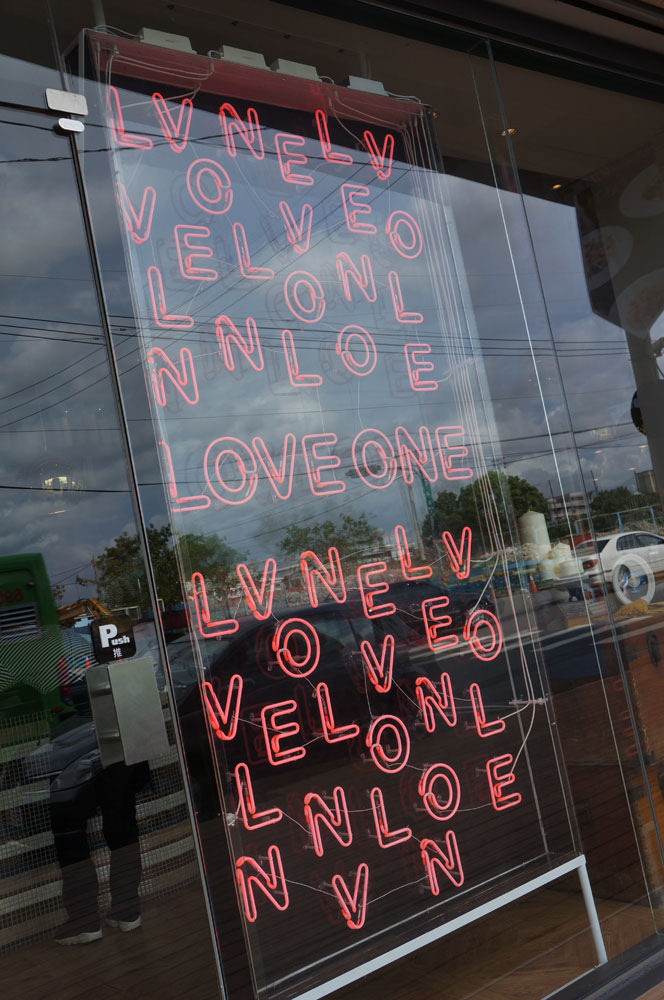 L V N E L V
O V E O
V E L O N L
L N L O E
N
LOVE ONE
L V N E L V
O V E O
V E L O N L
L N L O E
N V N
Push
推